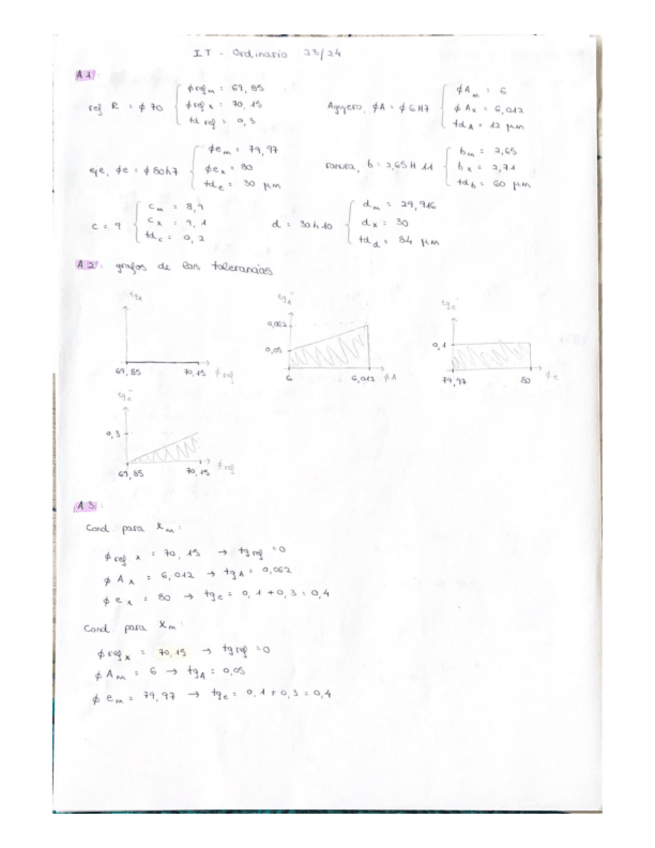 IT - Ordinario 23/24
A1:
ref R = ϕ70 { ϕref m = 69,85
ϕref x = 70,15
td ref = 0,3
Agujero, ϕA = ϕ6H7 { ϕA m = 6
ϕA x = 6,012
td A = 12 µm
eje, ϕe = ϕ80h7 { ϕe m = 79,97
ϕe x = 80
td e = 30 µm
ranura, b = 2,65 H11 { b m = 2,65
b x = 2,71
td b = 60 µm
c = 9 { c m = 8,9
c x = 9,1
td c = 0,2
d = 30h10 { d m = 29,916
d x = 30
td d = 84 µm
A2: grafos de las tolerancias
69,85 70,15 ϕref
tg A
0,062
0,05
6 6,012 ϕA
tg e
0,1
79,97 80 ϕe
tg e
0,3
69,85 70,15 ϕref
A3:
Cond para x m:
ϕref x = 70,15 → tg ref = 0
ϕA x = 6,012 → tg A = 0,062
ϕe x = 80 → tg e = 0,1 + 0,3 = 0,4
Cond para X m:
ϕref x = 70,15 → tg ref = 0
ϕA m = 6 → tg A = 0,05
ϕe m = 79,97 → tg e = 0,1 + 0,3 = 0,4